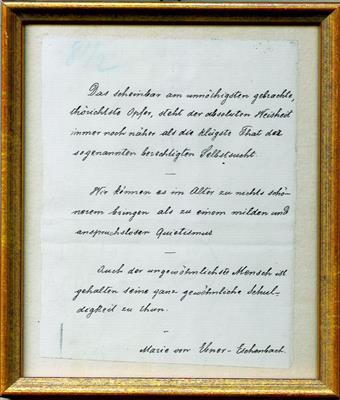 81/2
Das scheinbar am unnöthigsten gebrachte,
thörichtste Opfer, steht der absoluten Weisheit
immer noch näher als die klügste That der
sogenannten berechtigten Selbstsucht.
—
Wir können es im Alter zu nichts schö-
nerem bringen als zu einem milden und
anspruchslosen Quietismus
—
Auch der ungewöhnlichste Mensch ist
gehalten seine ganz gewöhnliche Schul-
digkeit zu thun.
—
Marie von Ebner-Eschenbach.